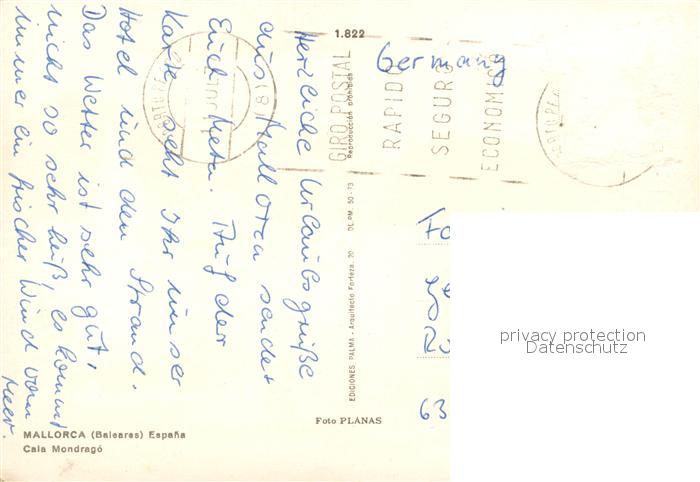 1.822
Germany
GIRO POSTAL
RAPIDO
SEGURO
ECONOMICO
Herzliche Urlaubsgrüße
aus Mallorca sendet
Euch Auf der
Karte seht Ihr unser
Hotel und den Strand.
Das Wetter ist sehr gut,
nicht so sehr heiß, es kommt
immer ein frischer Wind vom
Meer.
Reproducción prohibida
EDICIONES PALMA - Arquitecto Forteza, 20 DL.PM. 50 - 73
63
privacy protection
Datenschutz
Foto PLANAS
MALLORCA (Baleares) España
Cala Mondragó